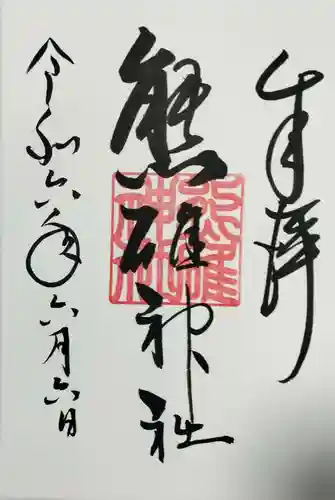 奉拝
熊碓神社
令和六年六月六日